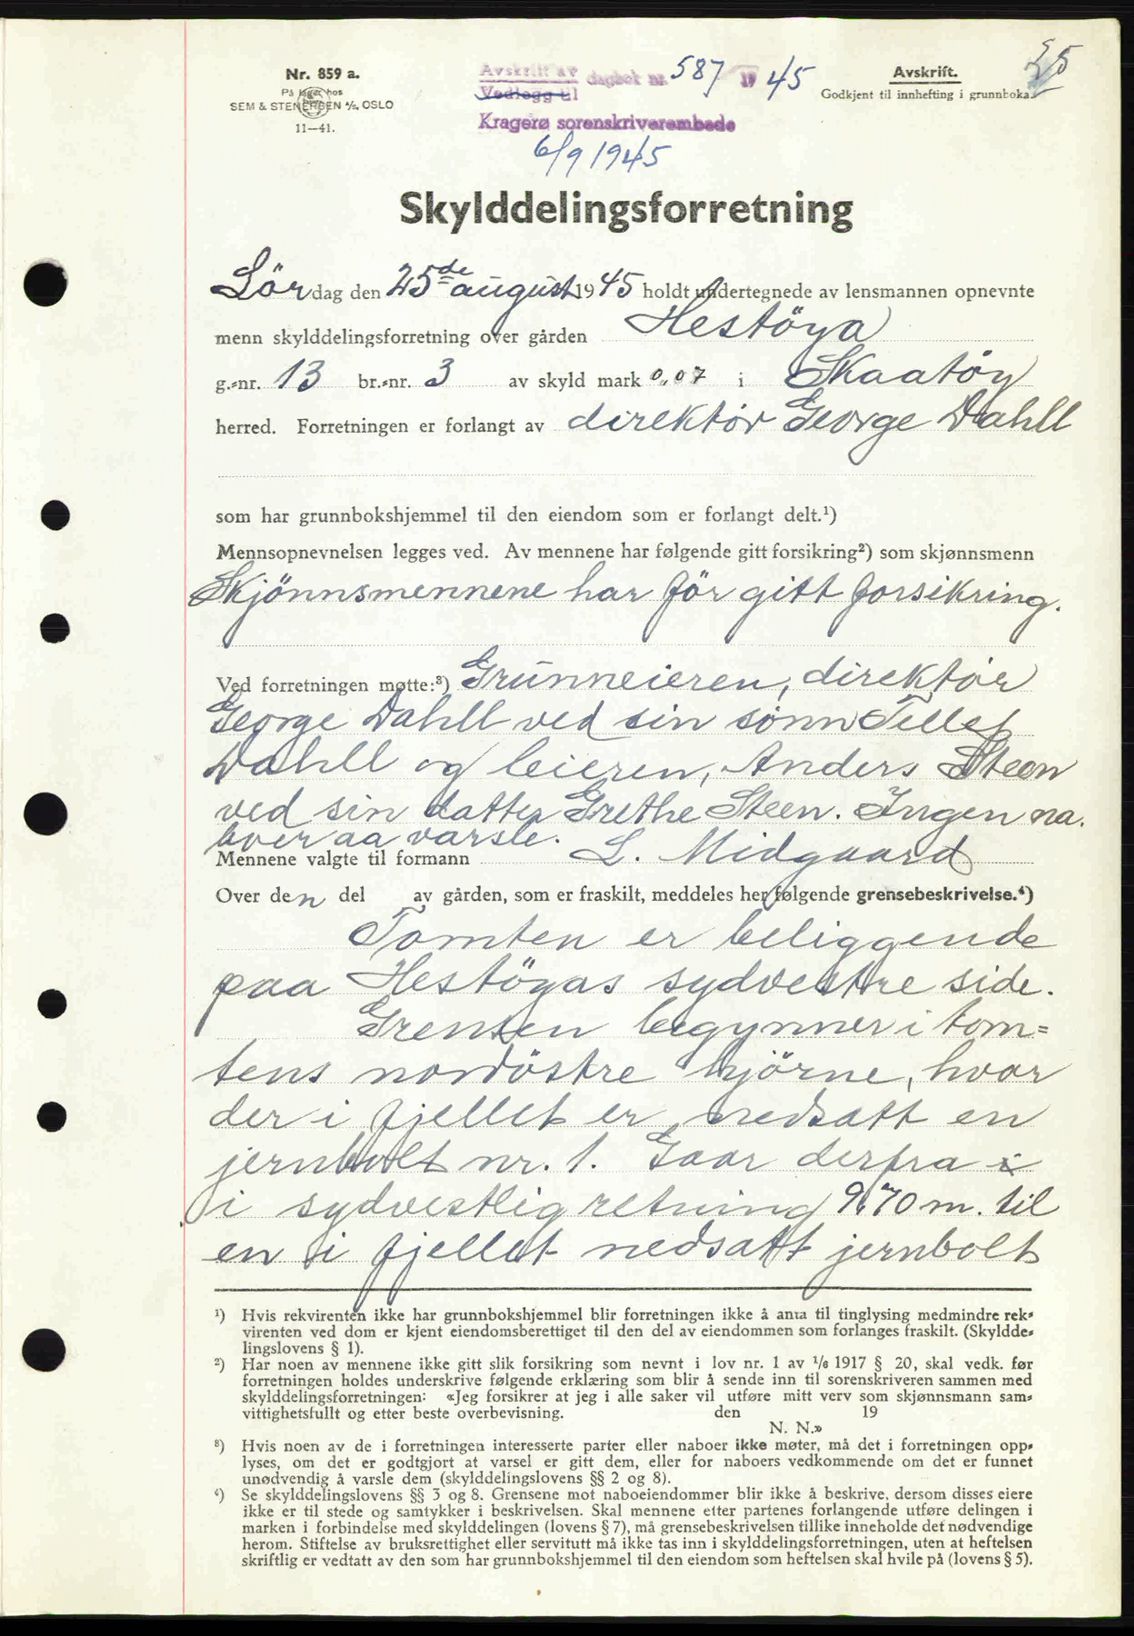 25
Nr. 859 a.
På lager hos
SEM & STENERSEN A/S. OSLO
11—41.
Avskrift av dagbok nr. 587 1945
Vedlegg til
Kragerø sorenskriverembede
6/9 1945
Avskrift.
Godkjent til innhefting i grunnboka.
Skylddelingsforretning
Lördag den 25de august 1945 holdt undertegnede av lensmannen opnevnte
menn skylddelingsforretning over gården Hestöya
g.-nr. 13 br.-nr. 3 av skyld mark 0,07 i Skaatöy
herred. Forretningen er forlangt av direktör George Dahll
som har grunnbokshjemmel til den eiendom som er forlangt delt.¹)
Mennsopnevnelsen legges ved. Av mennene har følgende gitt forsikring²) som skjønnsmenn
Skjönnsmennene har för gitt forsikring.
Ved forretningen møtte:³) Grunneieren, direktör
George Dahll ved sin sönn Tellef
Dahll og leieren, Anders Steen
ved sin datter Grethe Steen. Ingen na.
boer aa varsle.
Mennene valgte til formann L. Midgaard
Over den del av gården, som er fraskilt, meddeles her følgende grensebeskrivelse.⁴)
Tomten er beliggende
paa Hestöyas sydvestre side.
Grensen begynner i tom=
tens nordöstre hjörne, hvor
der i fjellet er nedsatt en
jernbolt nr. 1. Gaar derfra i
i sydvestlig retning 9,70 m. til
en i fjellet nedsatt jernbolt
¹) Hvis rekvirenten ikke har grunnbokshjemmel blir forretningen ikke å anta til tinglysing medmindre rek-
virenten ved dom er kjent eiendomsberettiget til den del av eiendommen som forlanges fraskilt. (Skyldde-
lingslovens § 1).
²) Har noen av mennene ikke gitt slik forsikring som nevnt i lov nr. 1 av 1/6 1917 § 20, skal vedk. før
forretningen holdes underskrive følgende erklæring som blir å sende inn til sorenskriveren sammen med
skylddelingsforretningen: «Jeg forsikrer at jeg i alle saker vil utføre mitt verv som skjønnsmann sam-
vittighetsfullt og etter beste overbevisning. den 19
N. N.»
³) Hvis noen av de i forretningen interesserte parter eller naboer ikke møter, må det i forretningen opp-
lyses, om det er godtgjort at varsel er gitt dem, eller for naboers vedkommende om det er funnet
unødvendig å varsle dem (skylddelingslovens §§ 2 og 8).
⁴) Se skylddelingslovens §§ 3 og 8. Grensene mot naboeiendommer blir ikke å beskrive, dersom disses eiere
ikke er til stede og samtykker i beskrivelsen. Skal mennene etter partenes forlangende utføre delingen i
marken i forbindelse med skylddelingen (lovens § 7), må grensebeskrivelsen tillike inneholde det nødvendige
herom. Stiftelse av bruksrettighet eller servitutt må ikke tas inn i skylddelingsforretningen, uten at heftelsen
skriftlig er vedtatt av den som har grunnbokshjemmel til den eiendom som heftelsen skal hvile på (lovens § 5).